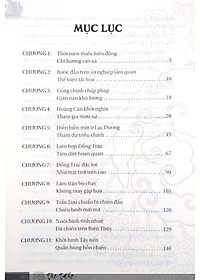 MỤC LỤC
CHƯƠNG 1: Thời niên thiếu hiếu động
Chí hướng cao xa 3
CHƯƠNG 2: Bước đầu trên sự nghiệp làm quan
Thể hiện tài hoa 10
CHƯƠNG 3: Công chính chấp pháp
Gian nan khó lường 18
CHƯƠNG 4: Hoàng Cân khởi nghĩa
Tham gia mưu sự 28
CHƯƠNG 5: Diễn biến mới ở Lạc Dương
Tham dự triều chính 45
CHƯƠNG 6: Liên hợp Đổng Trác
Tiêu diệt hoạn quan 67
CHƯƠNG 7: Đổng Trác đắc lợi
Như mặt trời trên cao 90
CHƯƠNG 8: Lâm trận bỏ chạy
Không may gặp họa 105
CHƯƠNG 9: Trần Lưu chuẩn bị chiến đấu
Chiêu binh mãi mã 120
CHƯƠNG 10: Nuôi binh tinh nhuệ
Đả chiến trên Biện Thủy 129
CHƯƠNG 11: Khởi binh Tây tiến
Quần hùng hỗn chiến 146